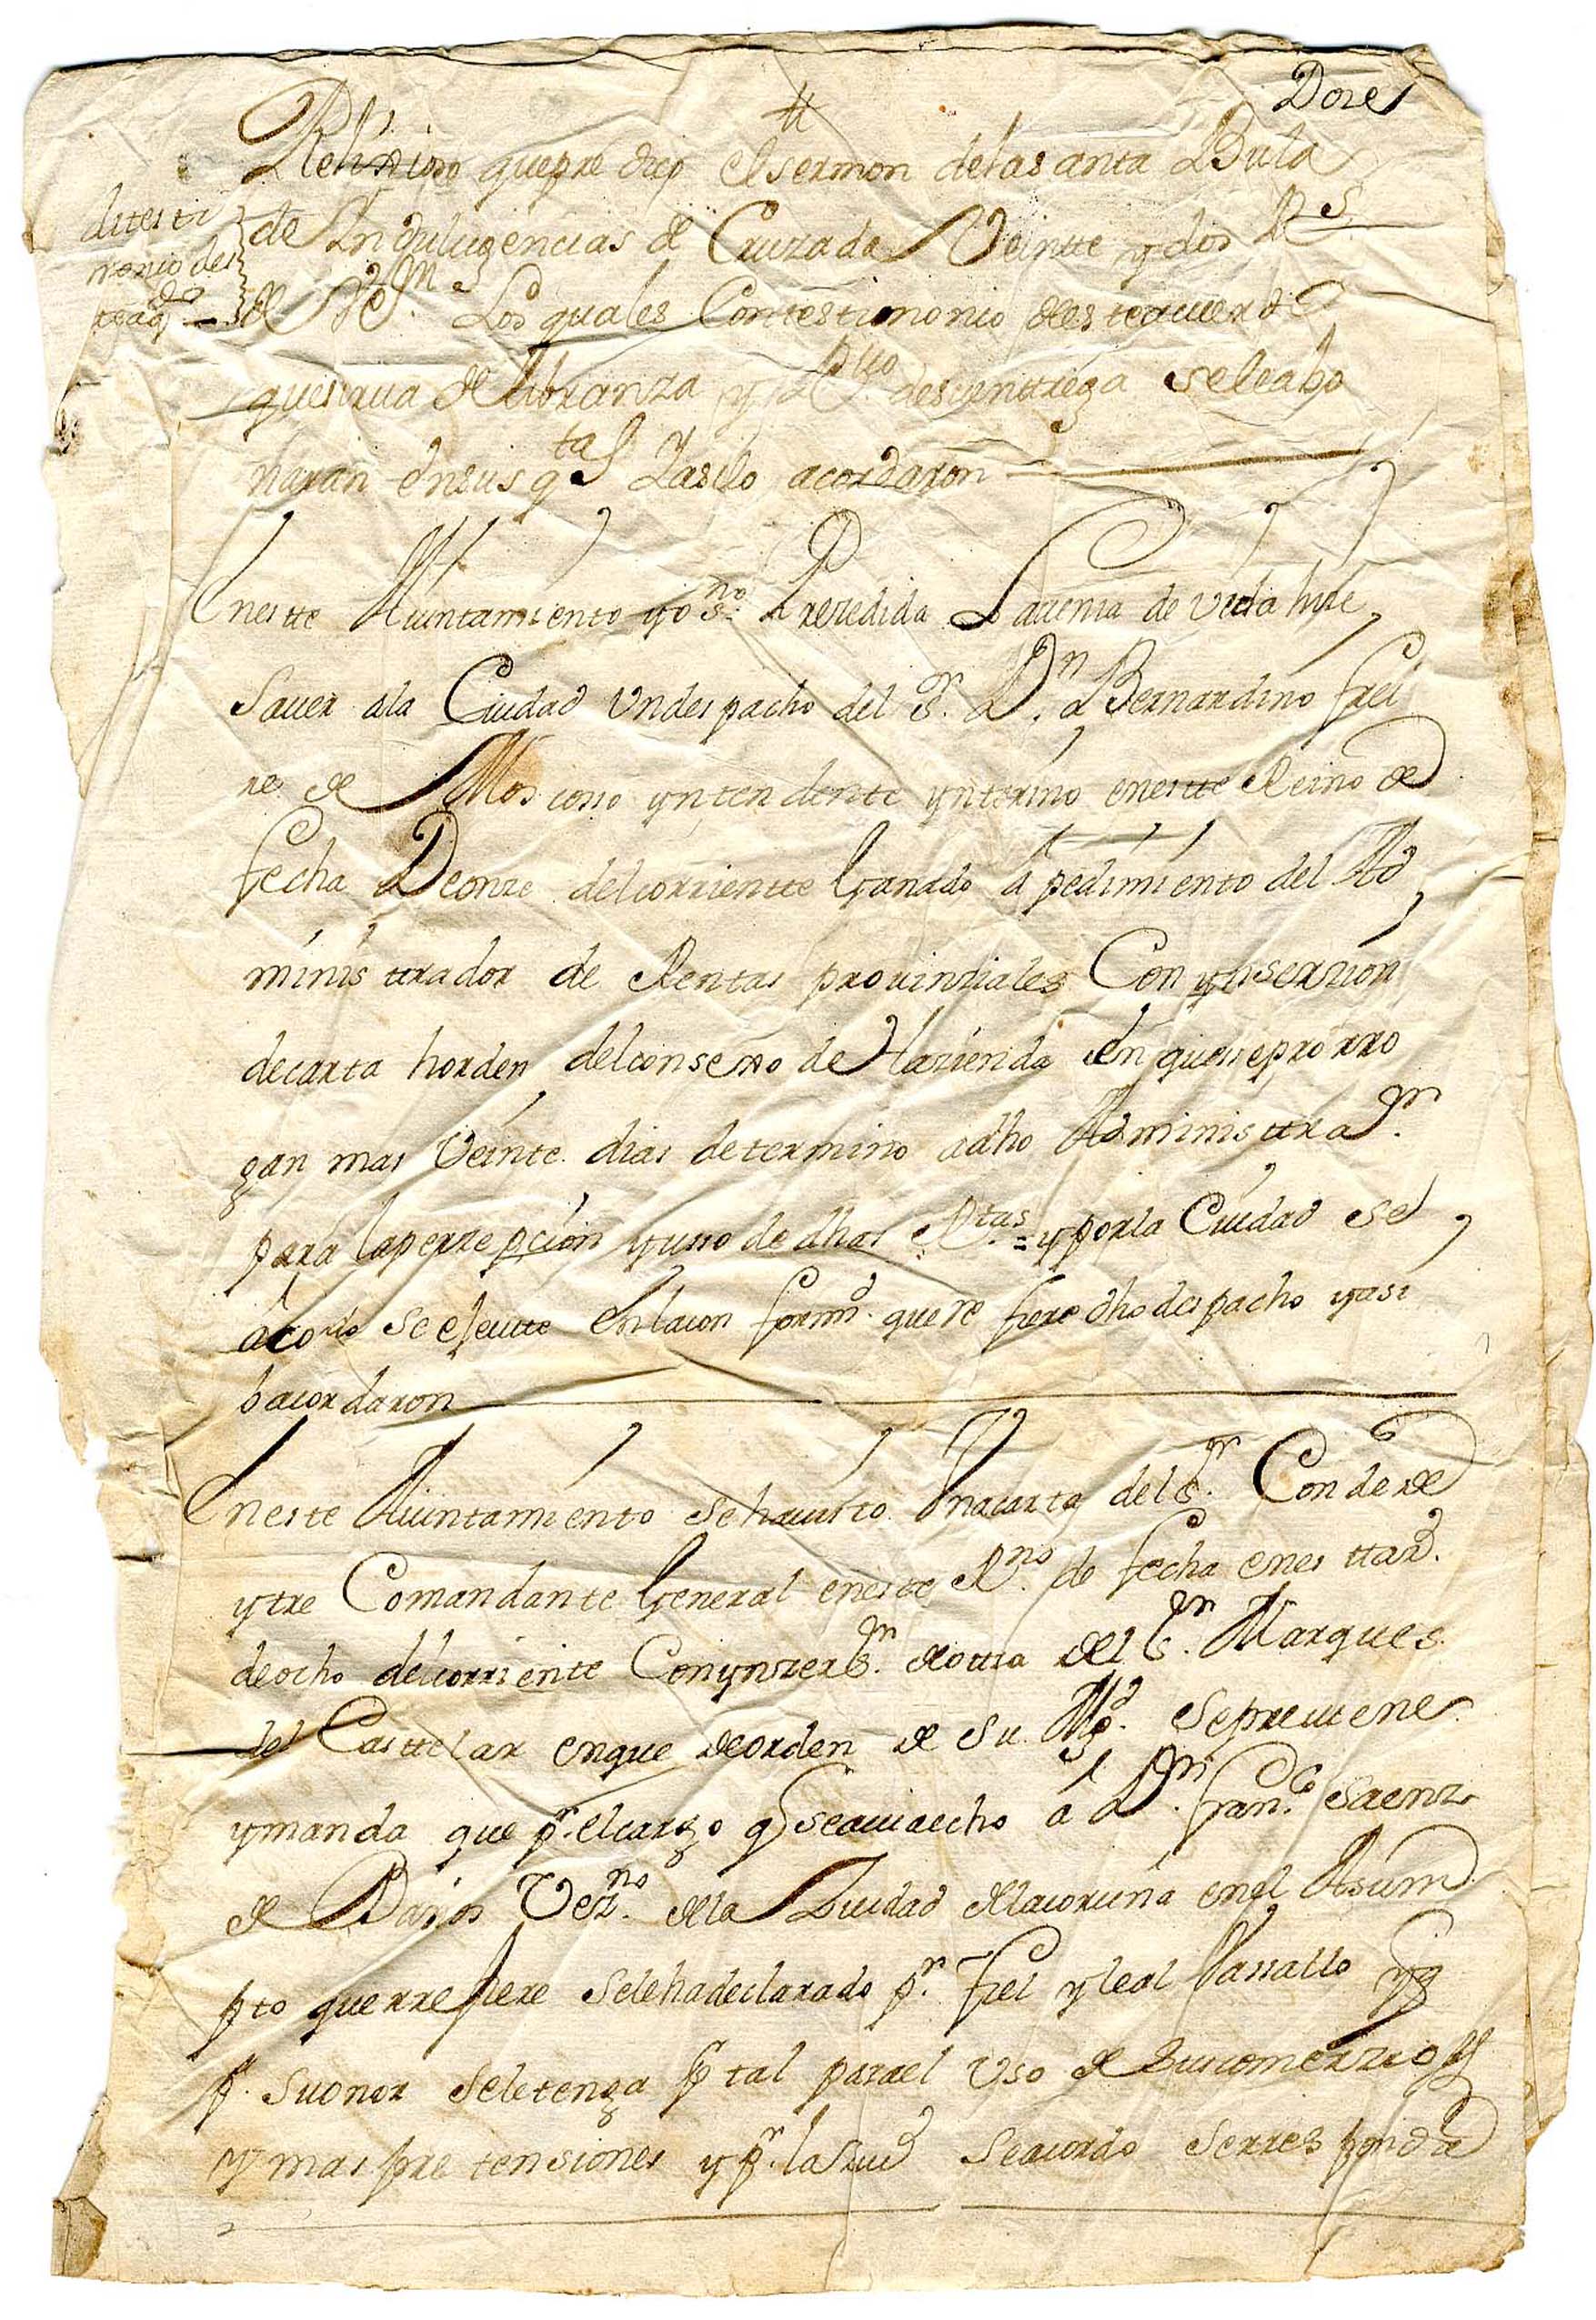 Doze
Relixioso que predicó el sermon de la santa Bula
de Yndulugencias de Cruzada Veintte y dos Rs
de Von Los quales Con testimonio deste acuerdo
que sirua de libranza y Rvo de su enttrega se le abo
naran en sus qtas Y asi lo acordaron
di testi
monio des
te aqdo
En estte Aiuntamiento yo sno Prezedida La uenia de Vrda hize
Sauer a la Ciudad Un despacho del Sr Dn Bernardino frei
re de Moscosso yntendente ynterino en estte Reino de
fecha De onze del corrientte Ganado a pedimiento del Ad
ministtrador de Rentas prouinziales Con ynserzion
de carta horden del consexo de Hazienda En que se prorro
gan mas Veinte dias de termino a dho Administtrador
para la perzepcion y uso de dhas Rtas = y por la Ciudad se
acordo se ejecutte En la conformd que refiere dho despacho y asi
lo acordaron
En este Aiuntamiento se ha uisto Una carta del Sr Conde de
ytre Comandante General en este Rno de fecha en estta d
de ocho del corriente Con ynserzn de otra del Sr Marques
del Casttelar en que de orden de Su Mgd se preuiene
y manda que pr el cargo q se auia echo a Dn franco Saenz
de Vezno de la Ziudad de la coruña en el Asum
pto que rrefiere se le ha declarado pr fiel y leal Vasallo y q
pr su onor se le tenga pr tal para el Uso de su comerzio
y mas pretensiones y pr la Ziud se acordo se rresponda